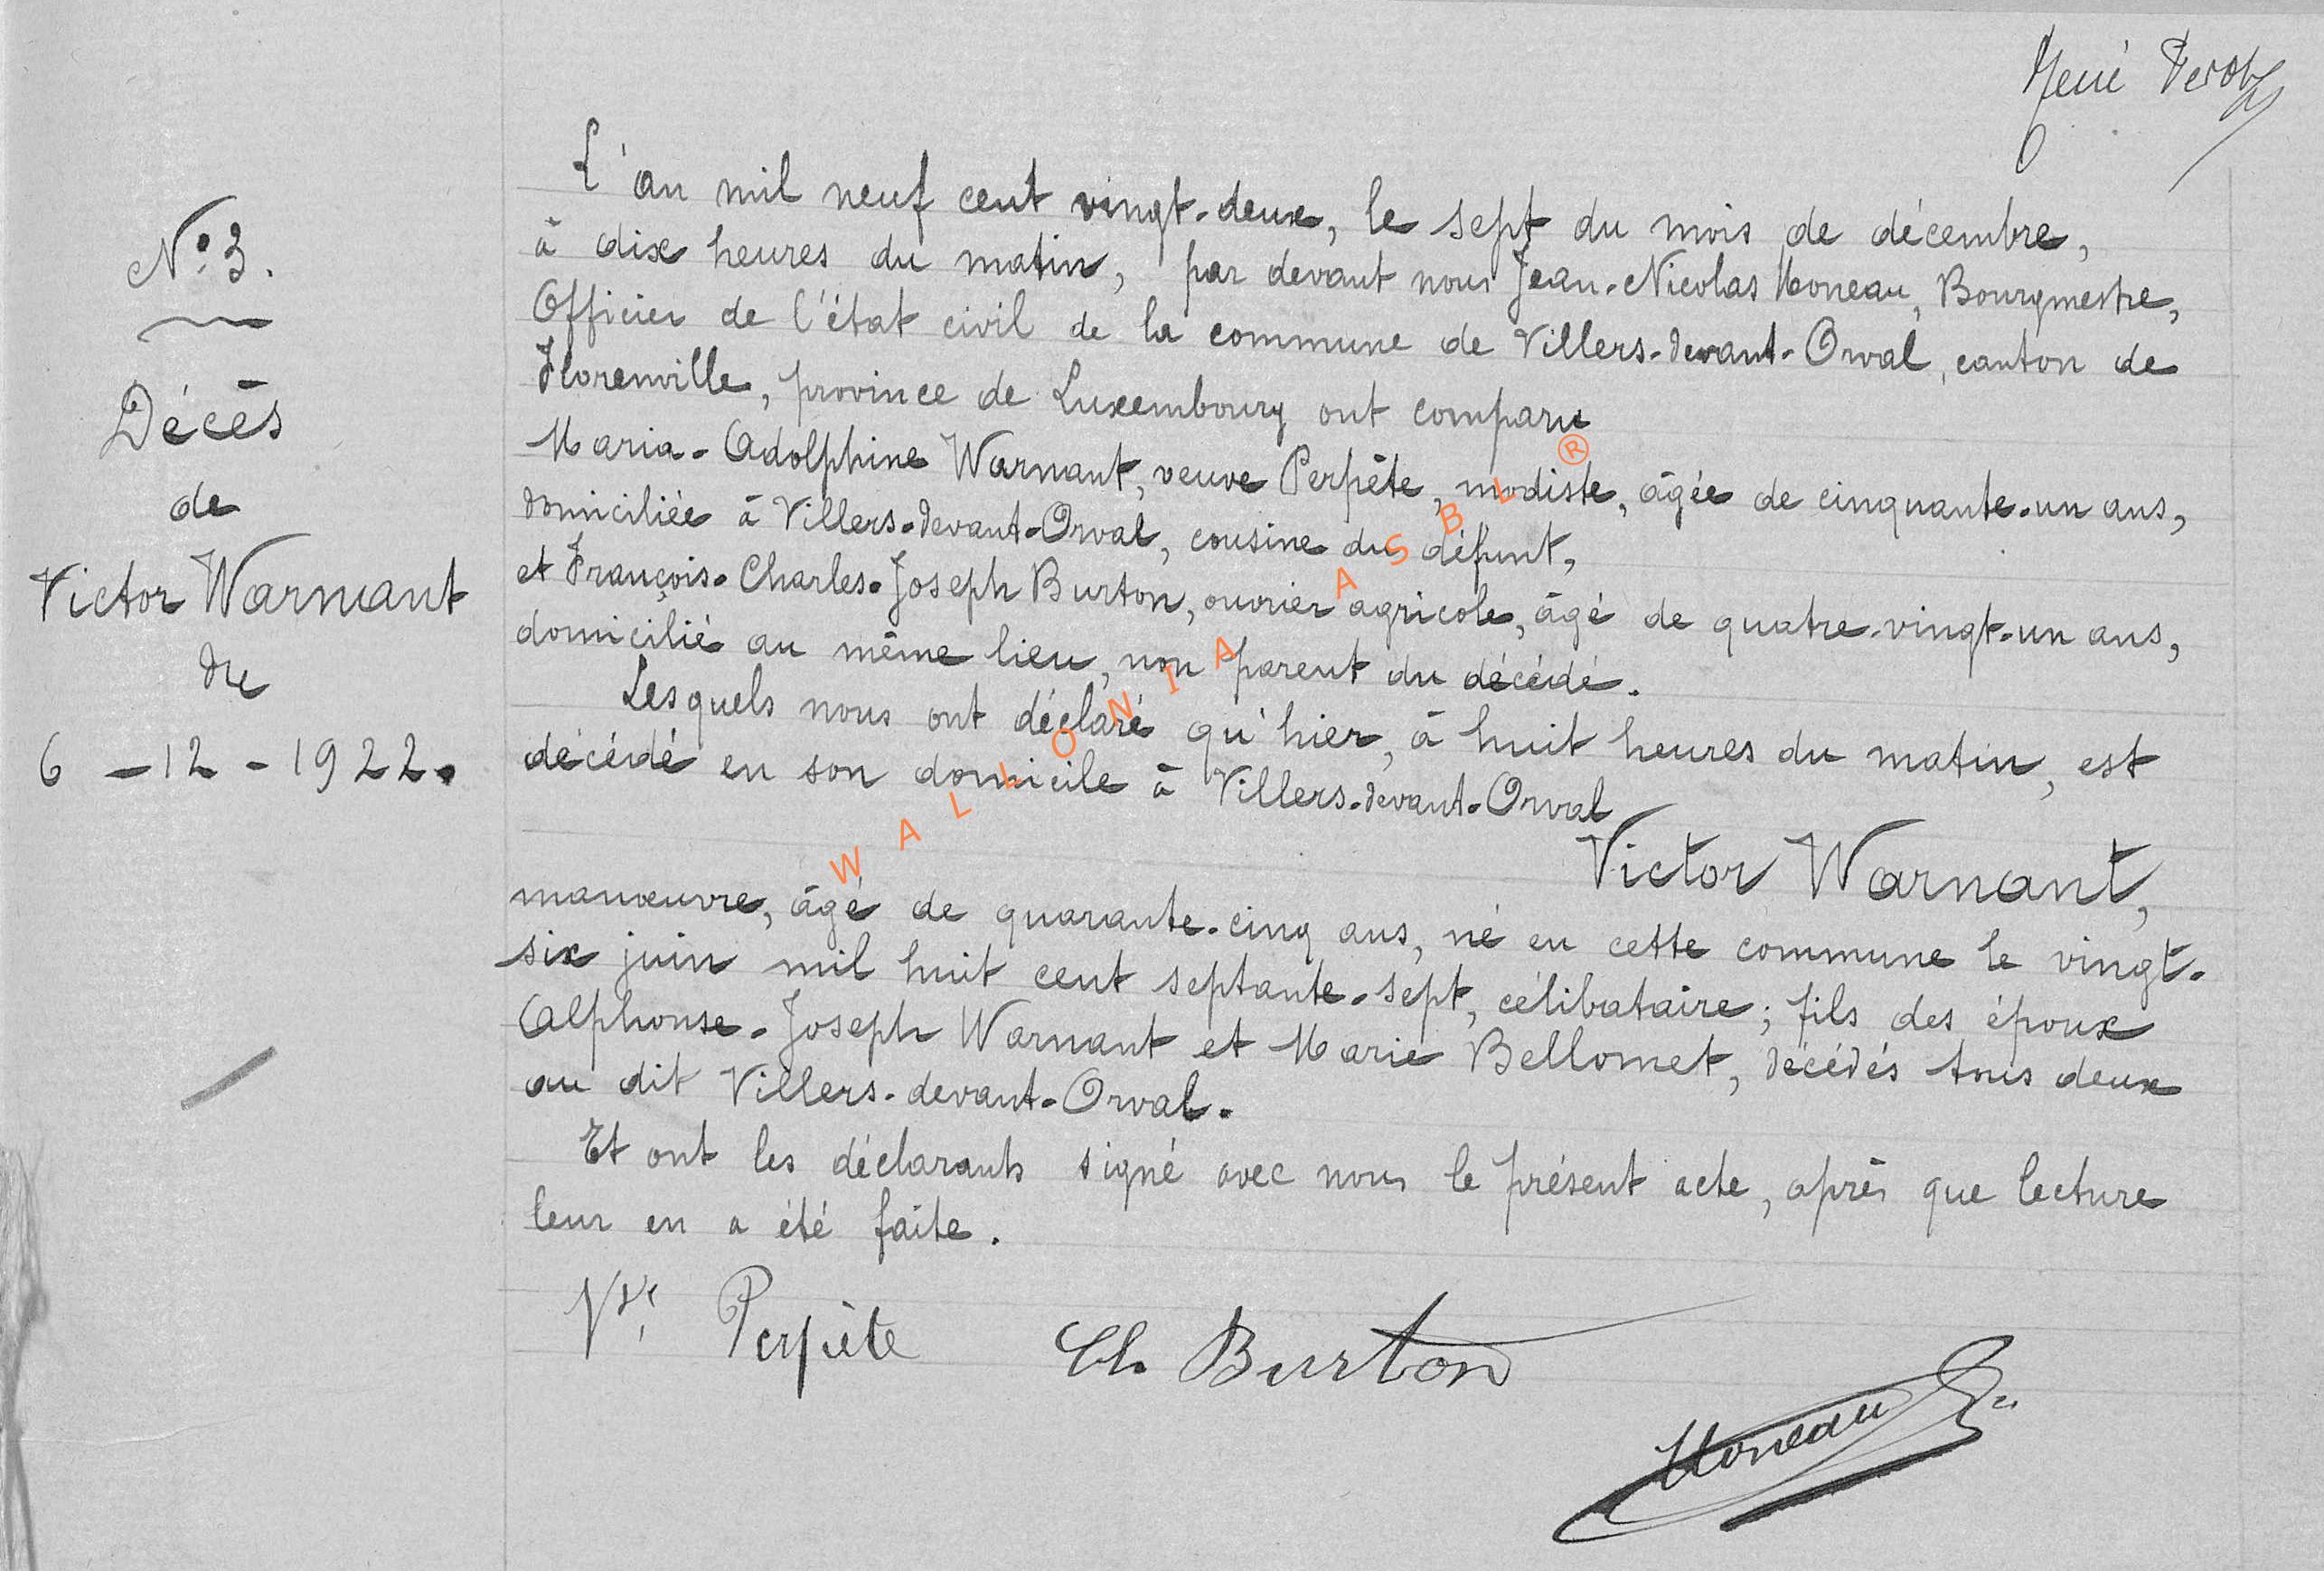 René Perot
N° 3.
Décès
de
Victor Warnant
du
6 - 12 - 1922.
L'an mil neuf cent vingt-deux, le sept du mois de décembre,
à dix heures du matin, par devant nous Jean-Nicolas Moneau, Bourgmestre,
Officier de l'état civil de la commune de Villers-devant-Orval, canton de
Florenville, province de Luxembourg ont comparu
Maria-Adolphine Warnant, veuve Perpète, modiste, âgée de cinquante-un ans,
domiciliée à Villers-devant-Orval, cousine du défunt,
et François-Charles-Joseph Burton, ouvrier agricole, âgé de quatre-vingt-un ans,
domicilié au même lieu, non parent du décédé.
Lesquels nous ont déclaré qu'hier, à huit heures du matin, est
décédé en son domicile à Villers-devant-Orval
Victor Warnant,
manœuvre, âgé de quarante-cinq ans, né en cette commune le vingt-
six juin mil huit cent septante-sept, célibataire; fils des époux
Alphonse-Joseph Warnant et Marie Bellomet, décédés tous deux
au dit Villers-devant-Orval.
Et ont les déclarants signé avec nous le présent acte, après que lecture
leur en a été faite.
Vve Perpète Ch. Burton
Moneau
WALLONIA ASBL ®